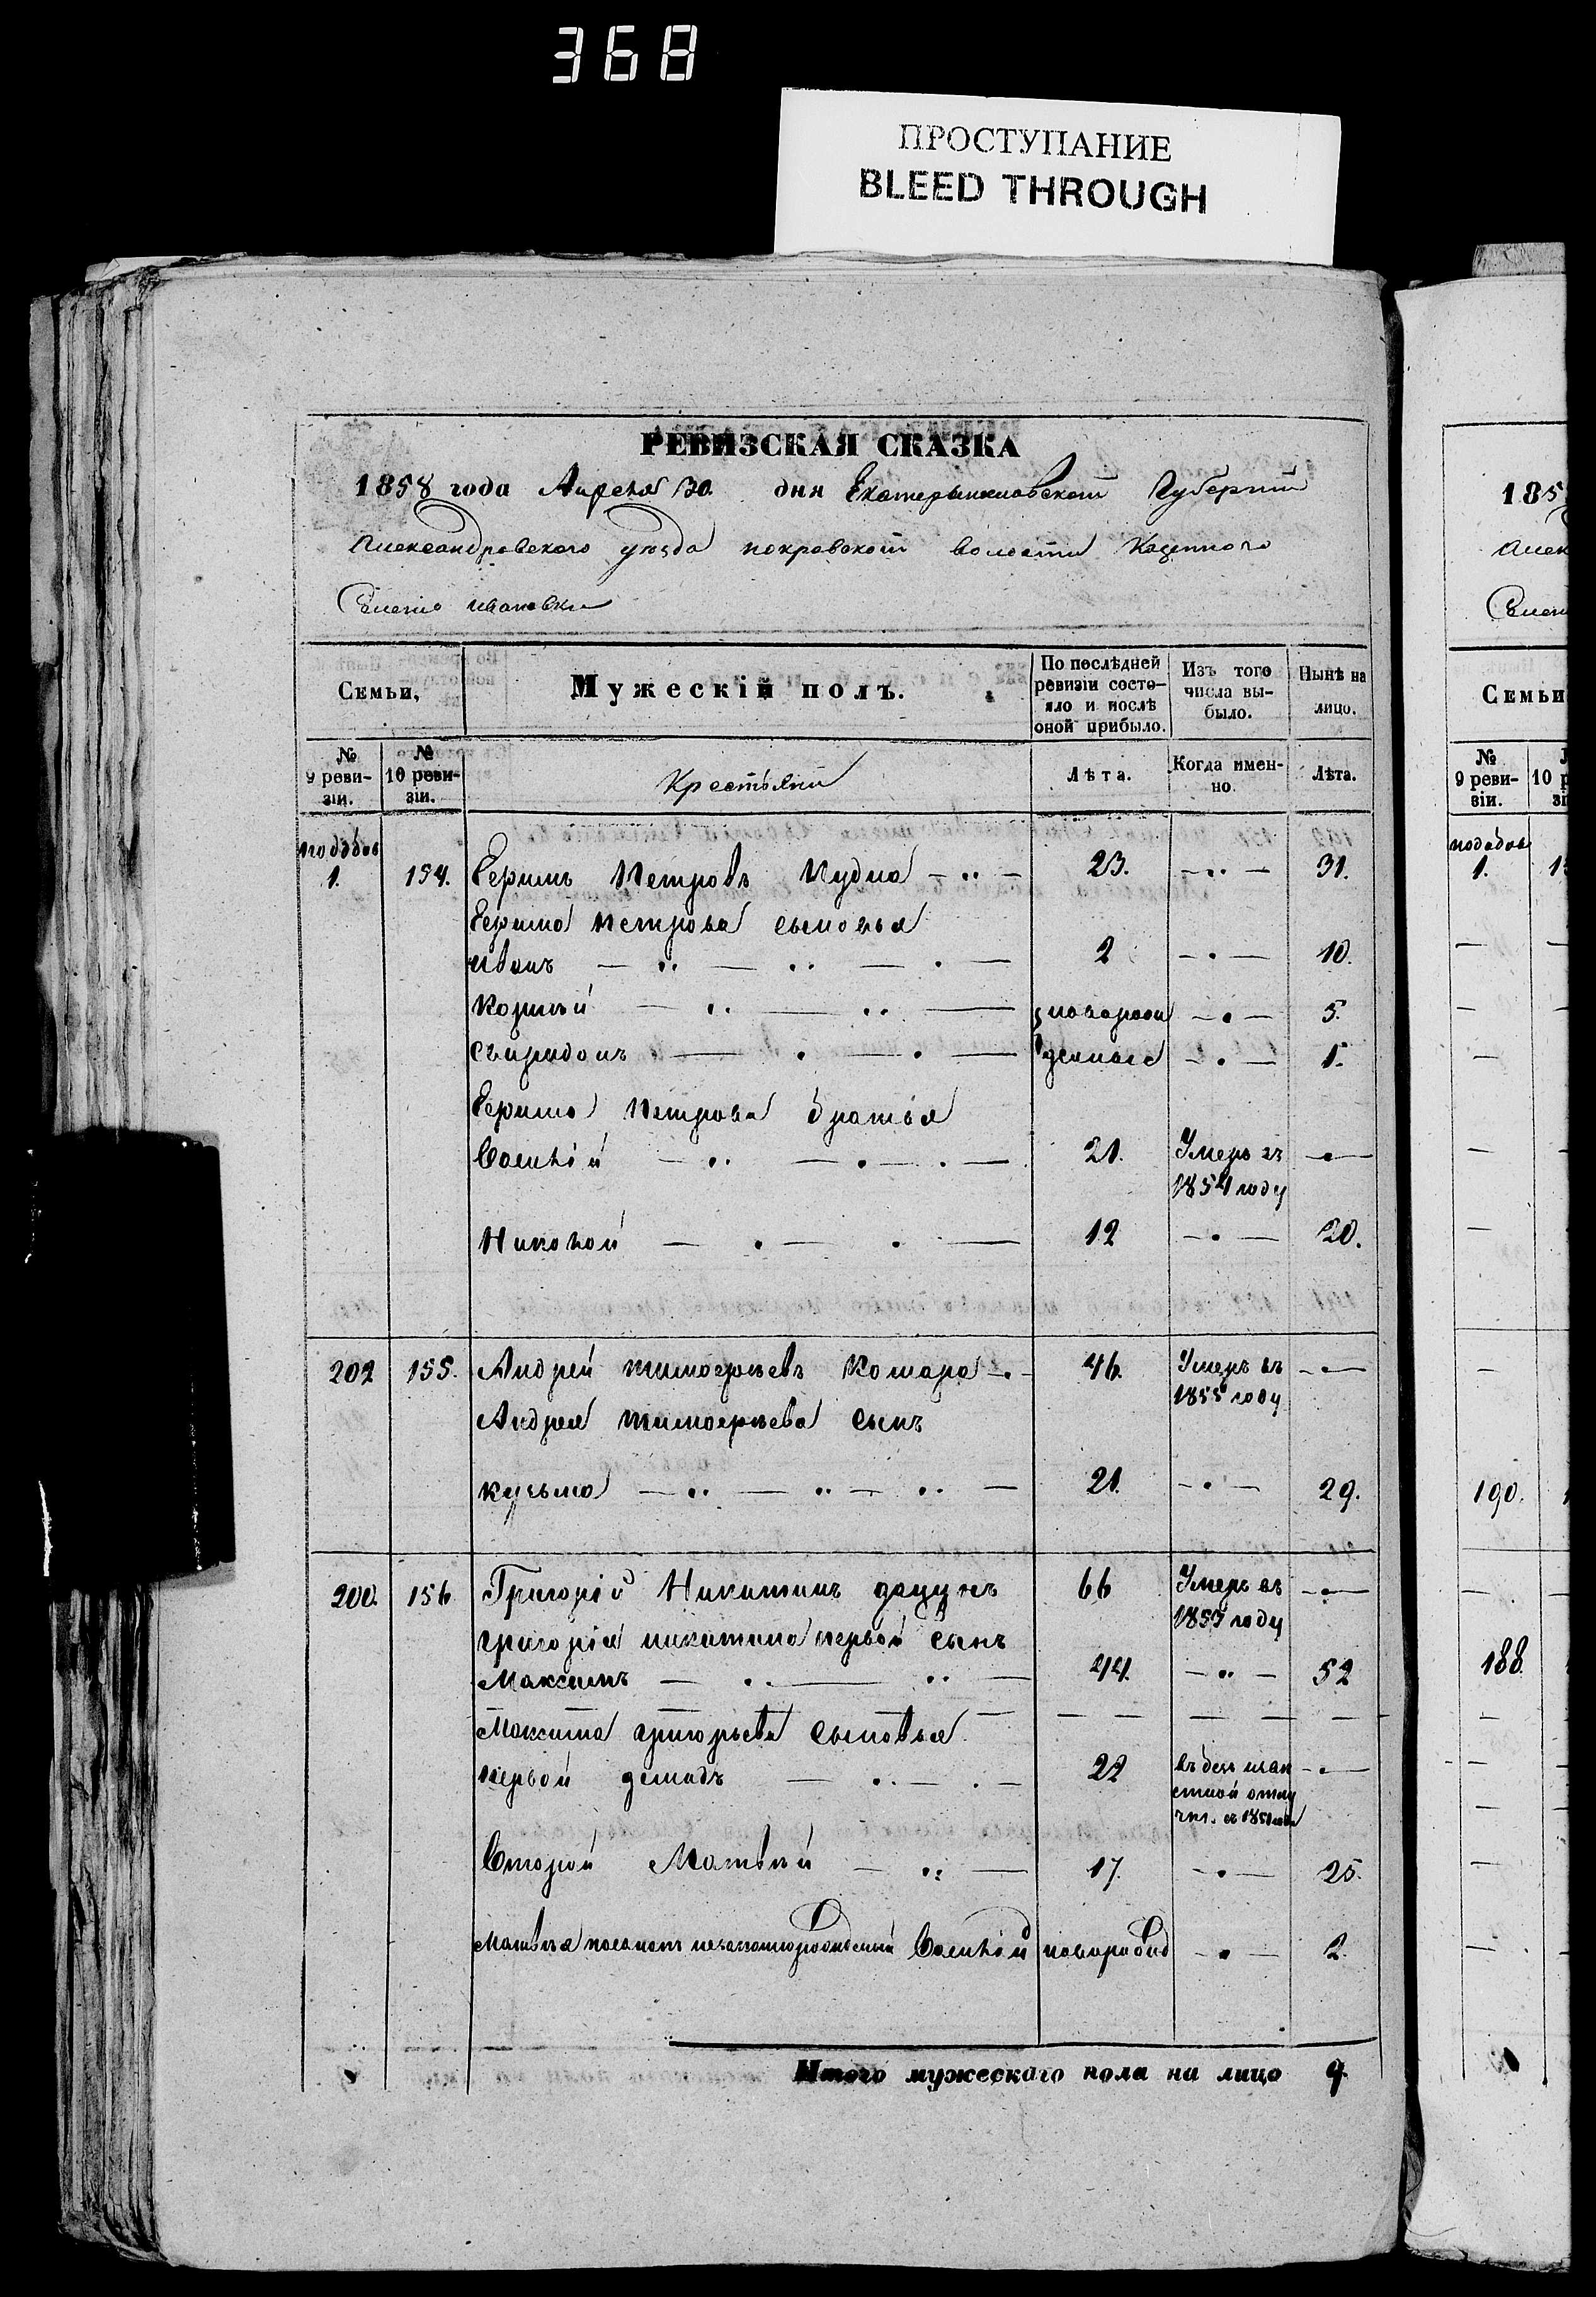 368
ПРОСТУПАНИЕ
BLEED THROUGH
РЕВИЗСКАЯ СКАЗКА
1858 года Апреля 30. дня Екатеринославской Губернии
Александровского уезда покровской волости Казенного
Селения ивановки
Семьи,
Мужескій полъ.
По послѣдней ревизіи состояло и послѣ оной прибыло.
Изъ того числа выбыло.
Нынѣ на лицо.
№ 9 ревизіи.
№ 10 ревизіи.
Крестьяни
Лѣта.
Когда именно.
Лѣта.
1. 154. Петровъ 23. 31.
Петрова сыновья
иванъ 2 10.
Корнѣй новорож 5.
Свиридонъ денные 1.
Петрова братья
Василій 21. Умеръ въ
1854 году
Николай 12 20.
202 155. Андрей тимофѣевъ Комара 46. Умеръ въ
1855 году
Андрея тимофѣева сынъ
кузьма 21. 29.
200. 156 Григорій Никитинъ 66 Умеръ въ
1857 году
григорія никитина первой сынъ
Максимъ 44. 52
Максима григорьева сыновья
первой демидъ 22
Второй Матвѣй 17. 25.
Матвѣя Василій новорожд 2.
Итого мужескаго пола на лицо 9.
185
Алек
Селен
Семьи
№ 9 ревизіи.
10
1.
190.
188.